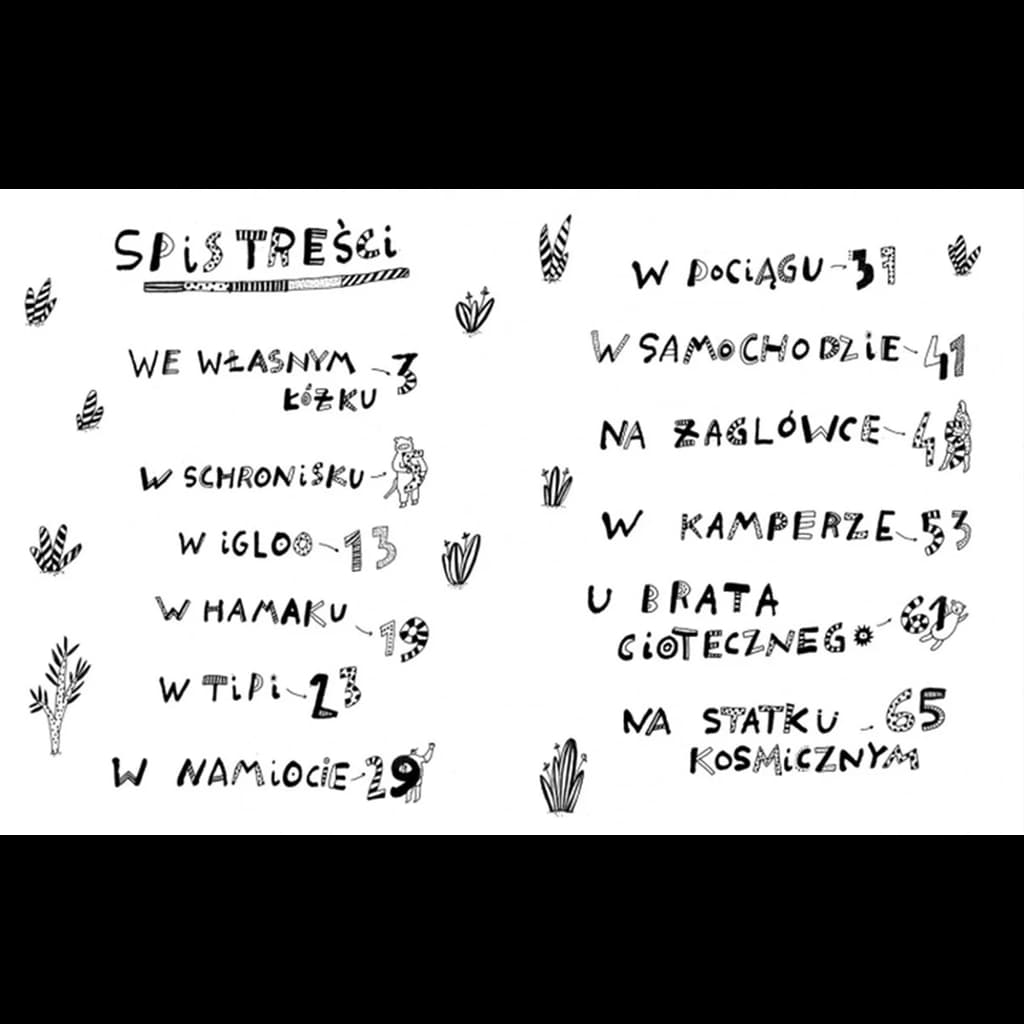 SPIS TREŚCI
WE WŁASNYM 3
ŁÓŻKU
W SCHRONISKU
W IGLOO 13
W HAMAKU 19
W TIPI 23
W NAMIOCIE 29
W POCIĄGU 31
W SAMOCHODZIE 41
NA ŻAGLÓWCE
W KAMPERZE 53
U BRATA
CIOTECZNEGO 61
NA STATKU 65
KOSMICZNYM